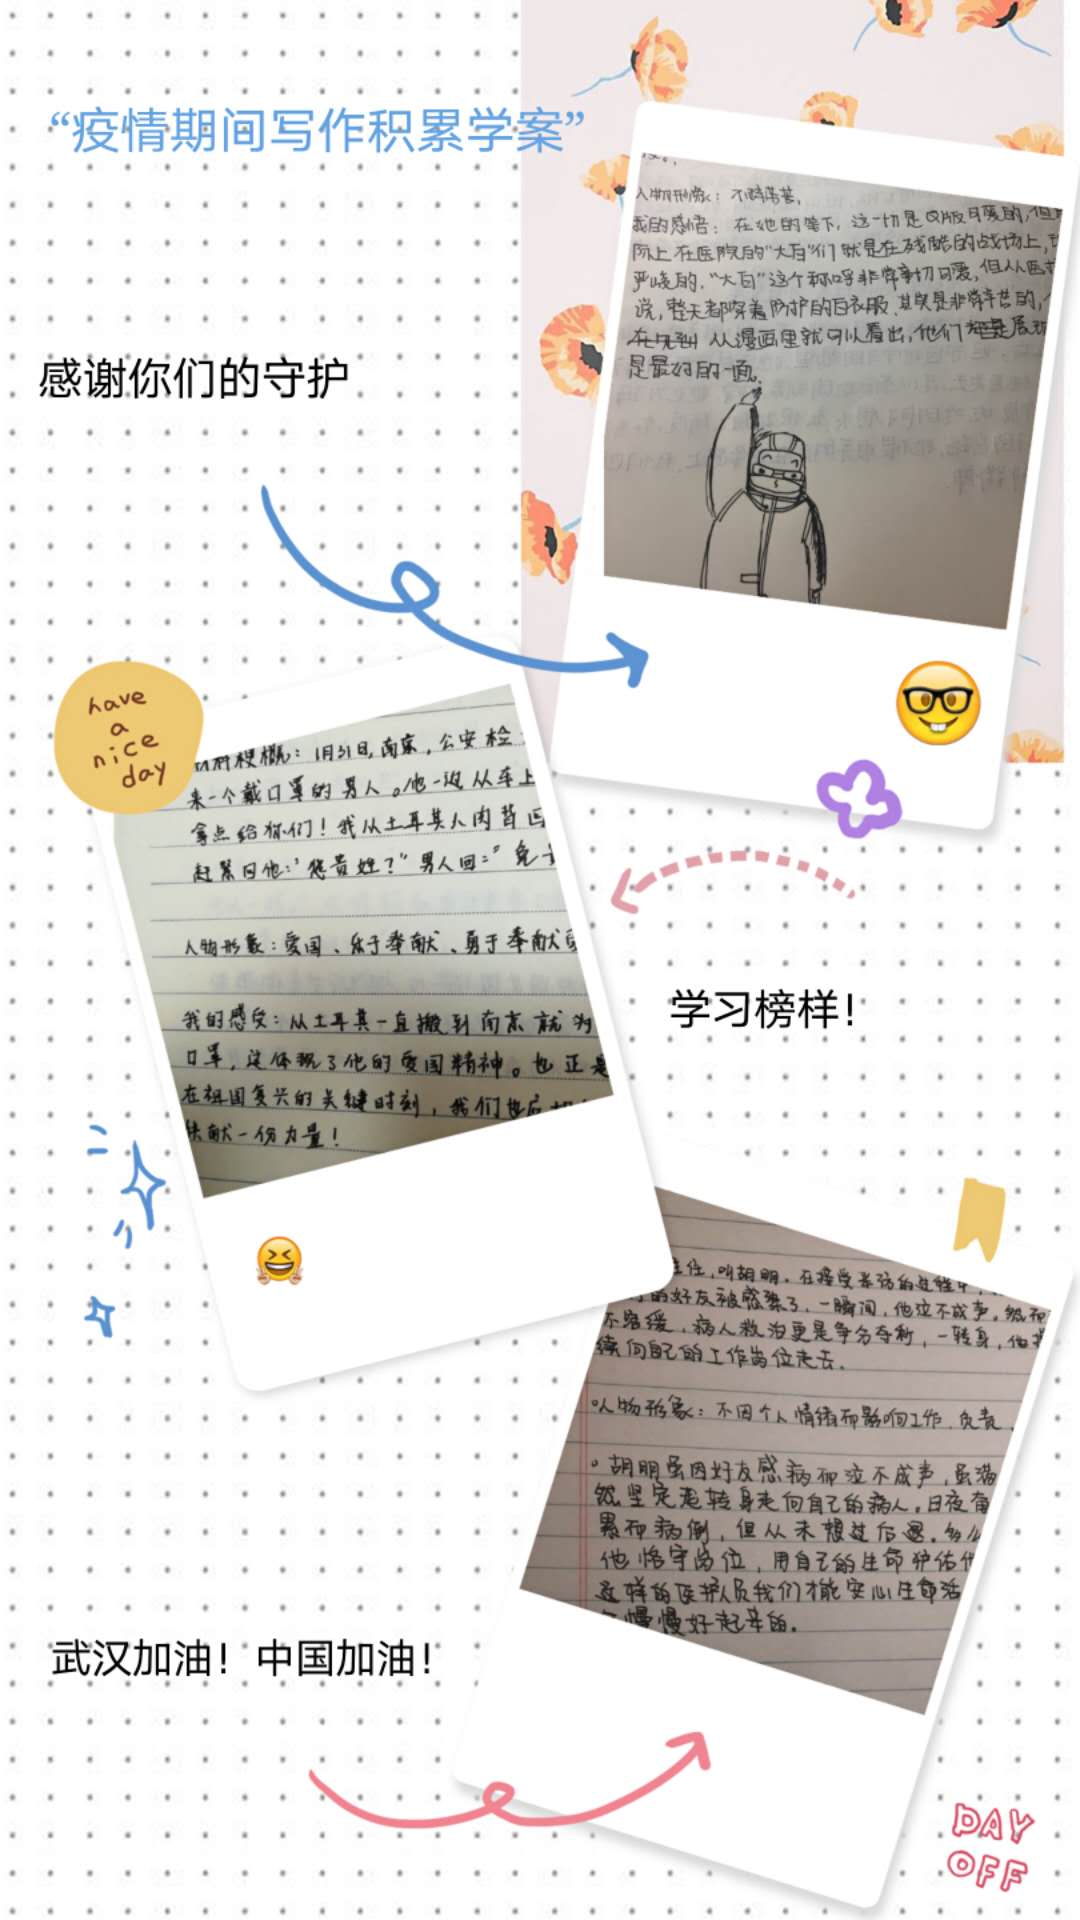 “疫情期间写作积累学案”
人物形象：不畏艰苦,
我的感悟：在她的笔下，这一切是Q版可爱的,但
际上在医院的“大白”们就是在残酷的战场上,
严峻的,“大白”这个称呼非常亲切可爱,但从医
说，整天都穿着防护的白衣服,其实是非常辛苦的,
从漫画里就可以看出,他们
是最好的一面。
感谢你们的守护
have
a
nice
day
材料梗概：1月31日,南京,公安检
来一个戴口罩的男人。他一边从车上
拿点给你们！我从土耳其人肉背回
赶紧问他:“您贵姓?”男人回:“免
人物形象：爱国、乐于奉献、勇于奉献
我的感受：从土耳其一直搬到南京就为
口罩，这体现了他的爱国精神。也正是
在祖国复兴的关键时刻，我们也应
贡献一份力量！
学习榜样！
主任,叫胡明。在接受采访的过程中
的好友被感染了,一瞬间,他泣不成声。然而
不容缓,病人救治更是争分夺秒,一转身,他
续向自己的工作岗位走去。
人物形象：不因个人情绪而影响工作、负责
胡明虽因好友感病而泣不成声,虽满
然坚定走转身走向自己的病人。日夜奋
累而病倒,但从未想过后退。
他恪守岗位,用自己的生命护佑他
这样的医护人员我们才能安心生命活
慢慢好起来的。
武汉加油！中国加油！
DAY
OFF